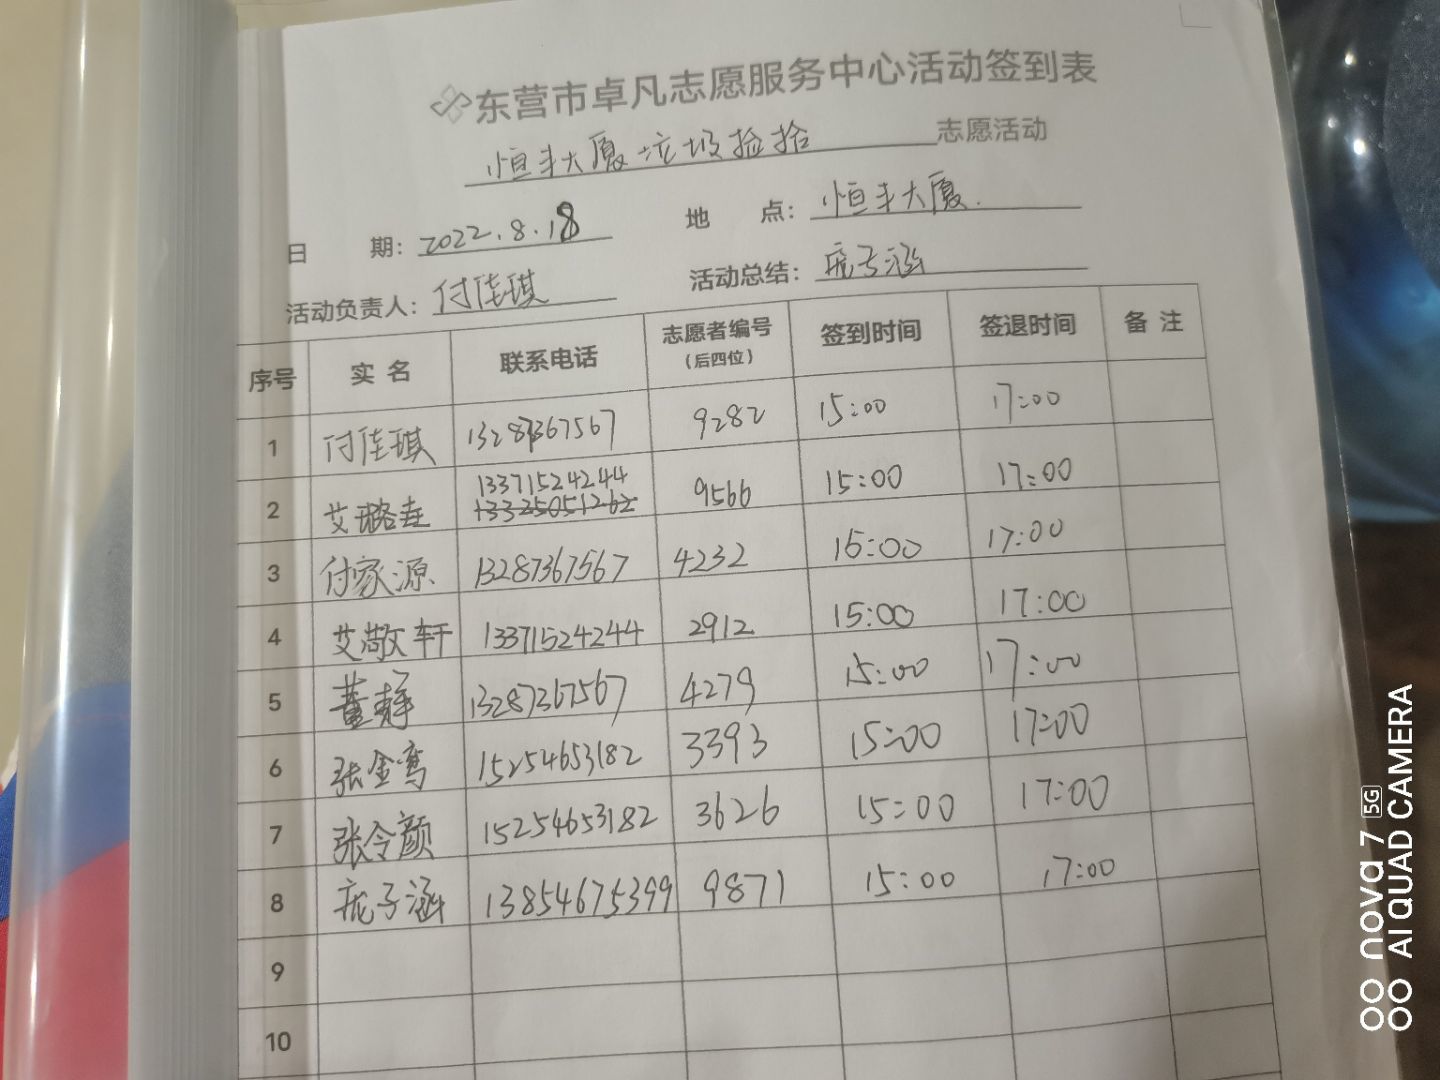 东营市卓凡志愿服务中心活动签到表
恒丰大厦垃圾捡拾 志愿活动
日 期: 2022.8.18 地 点: 恒丰大厦.
活动负责人: 付佳琪 活动总结: 庞子涵
序号 实名 联系电话 志愿者编号(后四位) 签到时间 签退时间 备注
1 付佳琪 13287367567 9282 15:00 17:00
13371524244
2 艾璐垚 13325051262 9566 15:00 17:00
3 付家源 13287367567 4232 15:00 17:00
4 艾敬文轩 13371524244 2912 15:00 17:00
5 董静 13287367567 4279 15:00 17:00
6 张金鸾 15254653182 3393 15:00 17:00
7 张令颜 15254653182 3626 15:00 17:00
8 庞子涵 13854675399 9871 15:00 17:00
9
10
nova 7 5G
AI QUAD CAMERA